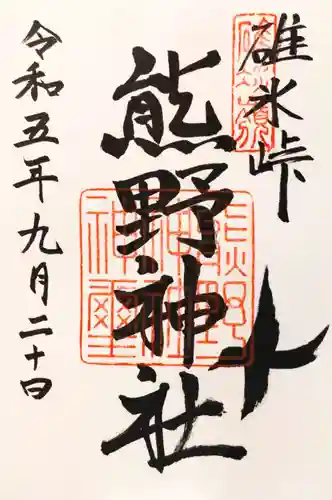 碓氷峠
熊野神社
令和五年九月二十日
熊野
神社
神璽